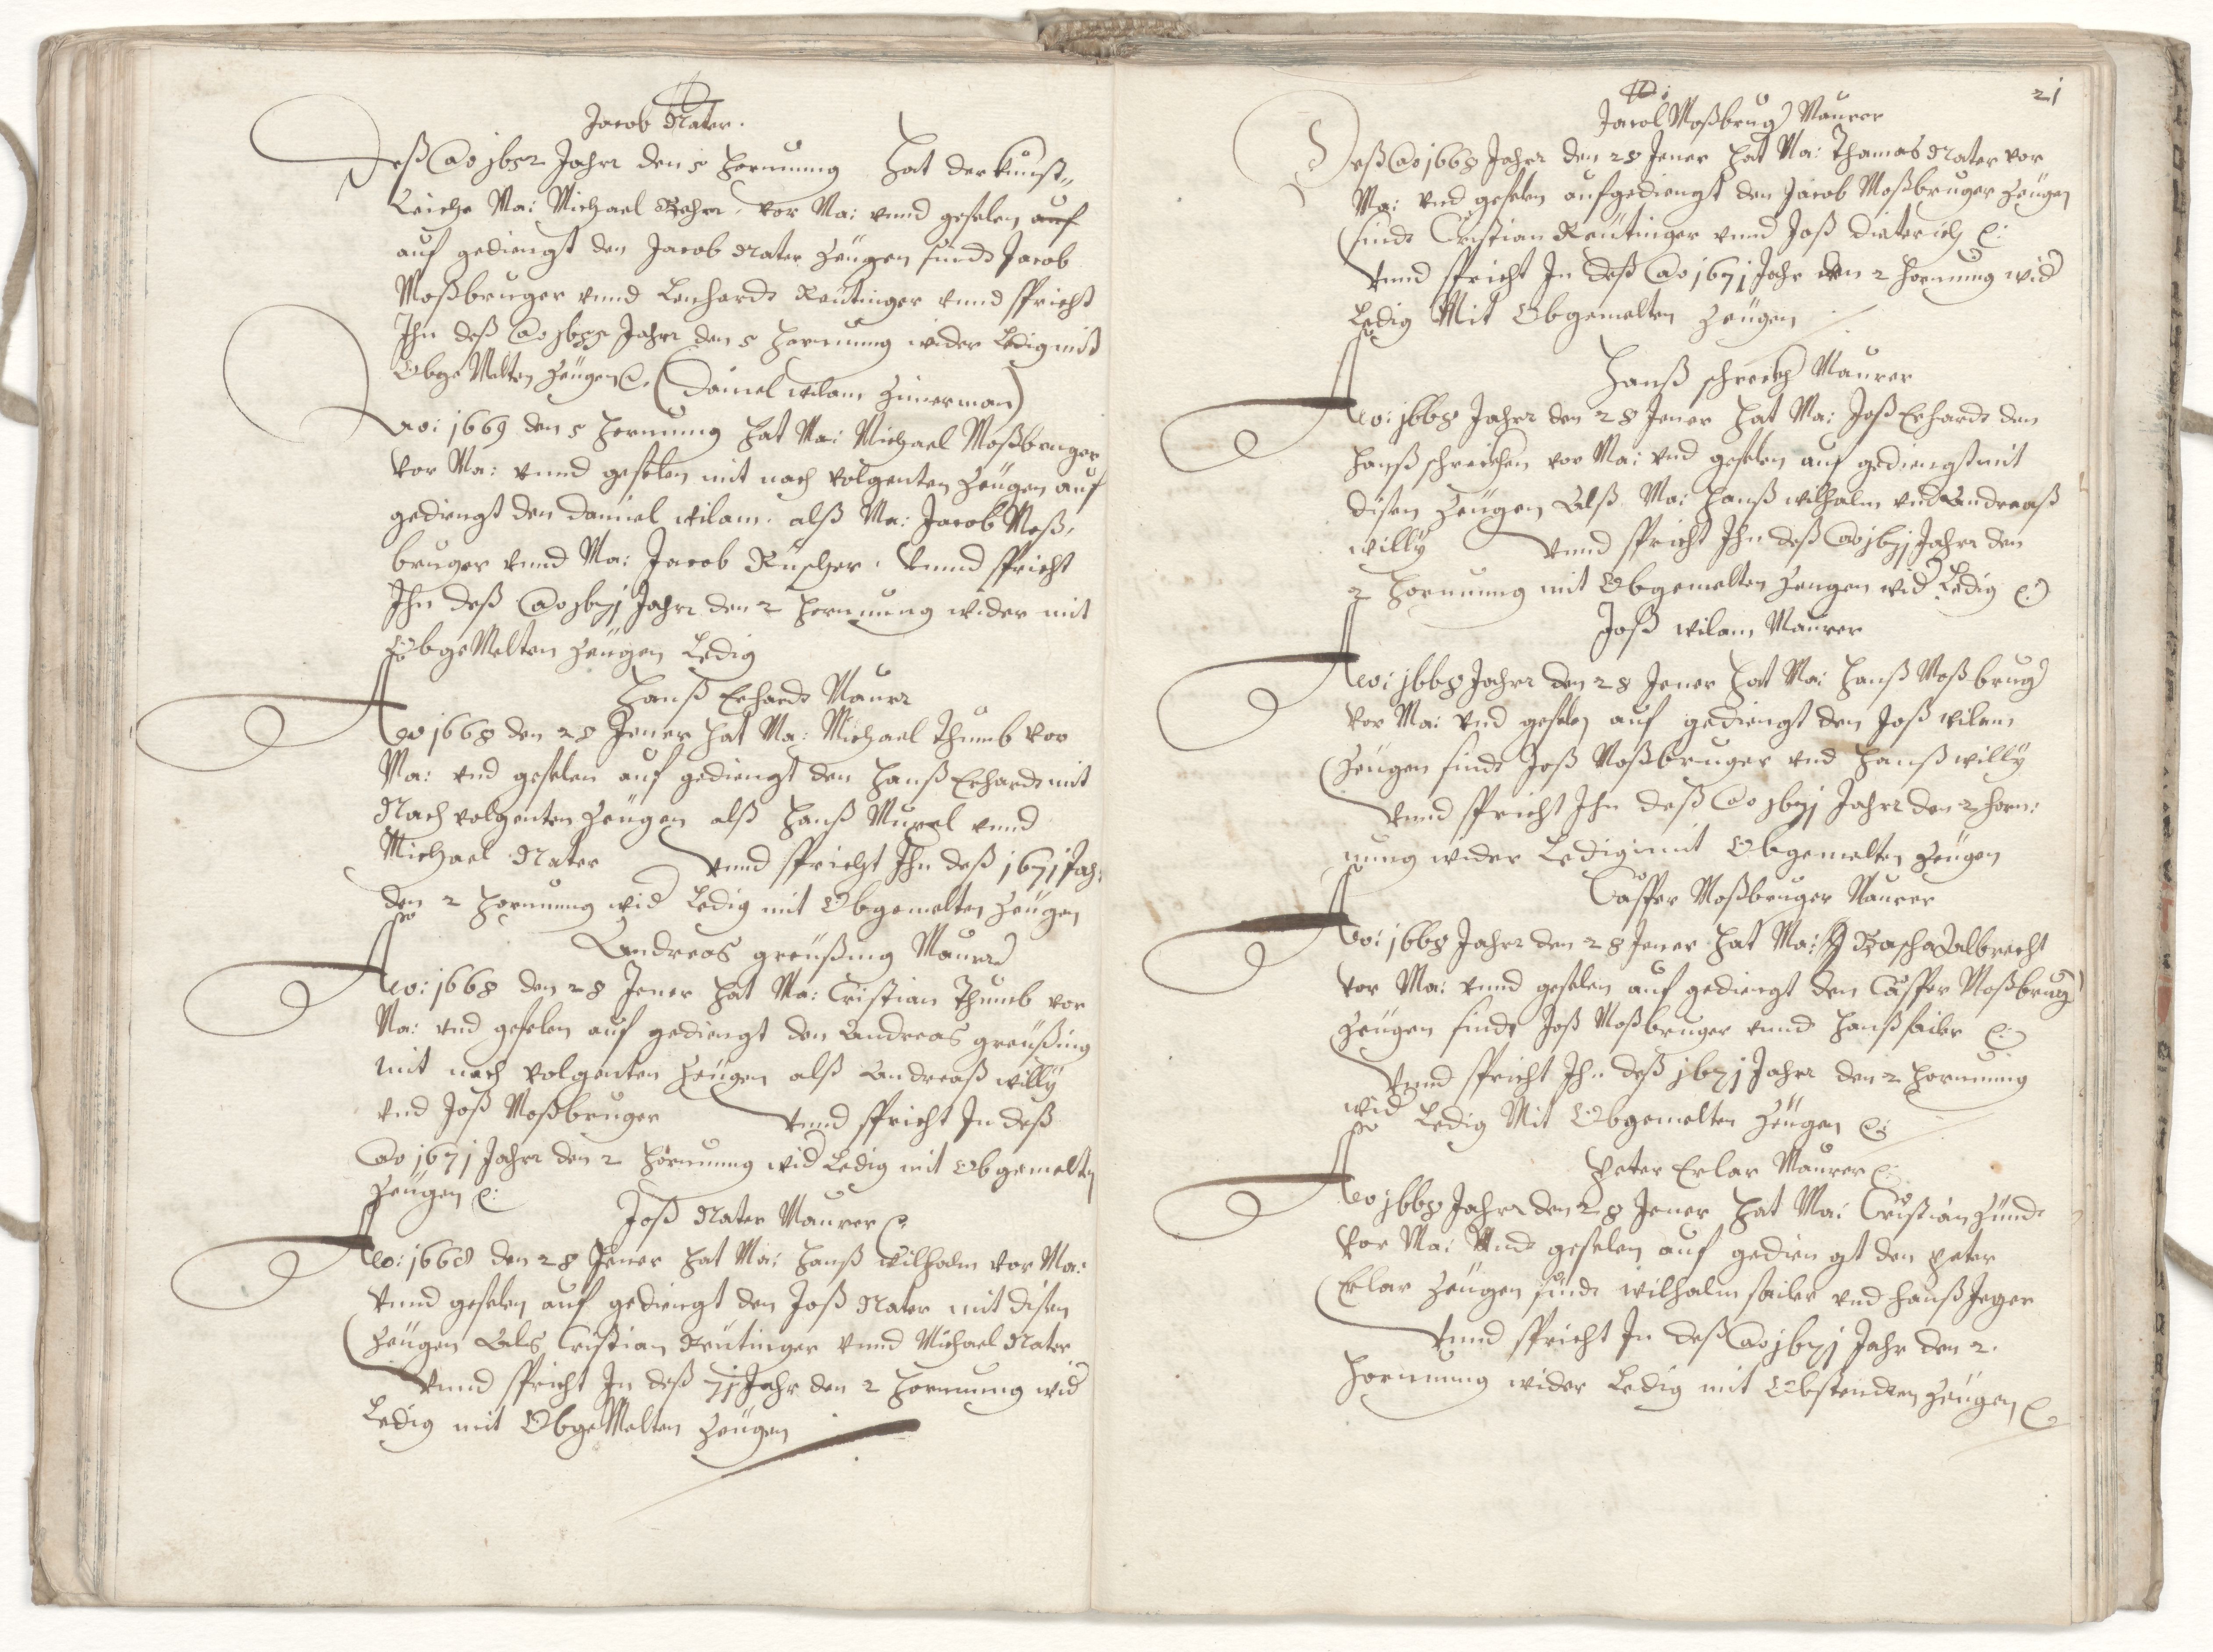 Jacob Nater.
Deß Ao j652 Jahrr den 5 Hornnung Hat der kunst„
Reiche Ma: Michael Behrr, vor Ma: vnnd geselen auf
auf gedienget den Jacob Nater Zeügen sindt Jacob
Moßbruger vnnd Lenhardt Reütinger vnnd spricht
Ihn deß Ao j655 Jahrr den 5 Hornnung wider Ledig mit
Obge Melten Zeügen (Daniel wilam Zimerman)
Ao: 1669 den 5 Hornnung Hat Ma: Michael Moßbruger
vor Ma: vnnd geselen mit nach volgenten Zeügen auf
gedienget den Daniel wilam. alß Ma: Jacob Moß,
bruger vnnd Ma: Jacob Rüscher. vnnd spricht
Ihn deß Ao j67j Jahrr den 2 Hornnung wider mit
ObgeMelten Zeügen Ledig
Hanß Erhardt Maurr
Ao 1668 den 28 Jener Hat Ma: Michael Thumb vor
Ma: vnd geselen auf gedienget den Hanß Erhardt mit
Nach volgenten Zeügen alß Hanß Murel vnnd
Michael Nater vnnd spricht Ihn deß j67j Jahr
den 2 Hornnung wid Ledig mit Obgemelten Zeügen
Andreas greüßing Maurer
Ao: 1668 den 28 Jener Hat Ma: Cristian Thumb vor
Ma: vnd geselen auf gedienget den Andreas greüßing
mit nach volgenten Zeügen alß Andreaß willÿ
vnd Joß Moßbruger vnnd spricht In deß
Ao j67j Jahrr den 2 Hornnung wid Ledig mit Obgemelten
Zeügen
Joß Nater Maurer
Ao: 1668 den 28 Jener Hat Ma: Hanß wilhalm vor Ma:
vnnd geselen auf gedienget den Joß Nater mit disen
Zeügen Als Cristian Reütinger vnnd Michael Nater
vnnd spricht In deß 7j Jahr den 2 Hornnung wid
Ledig mit ObgeMelten Zeügen
21
Jacol Moßbrug Maurer
Deß Ao 1668 Jahrr den 28 Jener Hat Ma: Thamas Nater vor
Ma: vnd geselen aufgedienget den Jacob Moßbruger Zeügen
sindt Cristian Reütinger vnnd Joß Dieterich
vnnd spricht In deß Ao 167j Jahr den 2 Hornnung wid
Ledig Mit Obgemelten Zeügen
Hanß schreckh Maurer
Ao: j668 Jahrr den 28 Jener Hat Ma: Joß Erhardt den
Hanß schreckhen vor Ma: vnd geselen auf gedienget mit
disen Zeügen Alß Ma: Hanß wilhalm vnd Andreaß
willÿ vnnd spricht Ihn deß Ao j67j Jahrr den
2 Hornnung mit Obgemelten Zeügen wid Ledig
Joß wilam Maurer
Ao: j668 Jahrr den 28 Jener Hat Ma: Hanß Moßbrug
vor Ma: vnd geselen auf gedienget den Joß wilam
Zeügen sindt Joß Moßbruger vnd Hanß willÿ
vnnd spricht Ihn deß Ao j67j Jahrr den 2 Horn:
nung wider Ledig mit Obgemelten Zeügen
Casper Moßbruger Maurer
Ao: 1668 Jahrr den 28 Jener Hat Ma: Bascha albrecht
vor Ma: vnnd geselen auf gedienget den Casper Moßbrug
Zeügen sindt Joß Moßbruger vnnd Hanß sailer
vnnd spricht Ihn deß j67j Jahrr den 2 Hornnung
wid Ledig Mit Obgemelten Zeügen
Peter Erlar Maurer
Ao j668 Jahrr den 28 Jener Hat Ma: Cristian Zündt
vor Ma: Vndt geselen auf gedienget den peter
Erlar Zeügen sindt wilhalm sailer vnd Hanß Jeger
vnnd spricht In deß Ao j67j Jahr den 2.
Hornnung wider Ledig mit Obstendten Zeügen